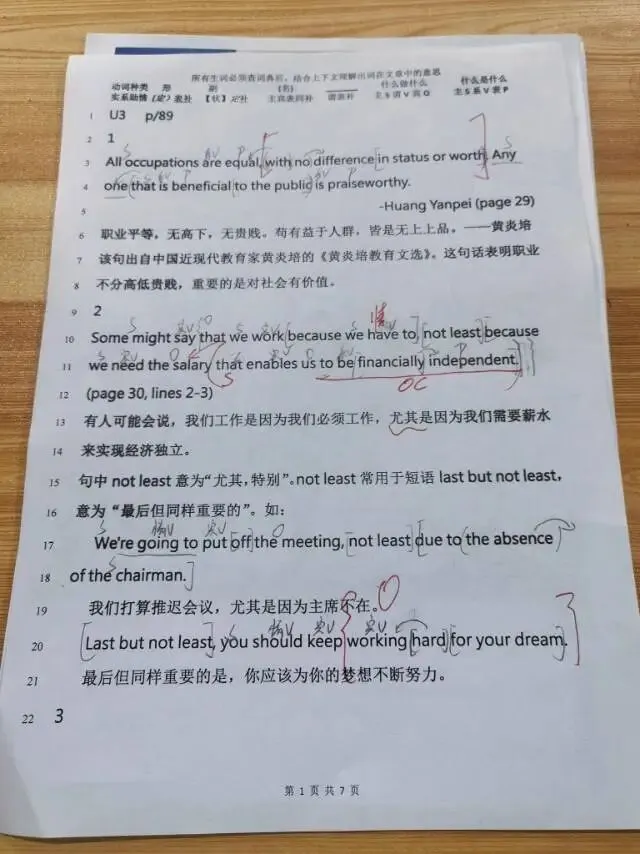 所有生词必须查词典后,结合上下文理解出词在文章中的意思
动词种类 形 副 (名) 什么做什么 什么是什么
实系助情 (定)表补 【状】定补 主宾表同补 谓表补 主S谓V宾O 主S系V表P
1 U3 p/89
2 1
3 All occupations are equal, with no difference in status or worth. Any
4 one that is beneficial to the public is praiseworthy.
5 -Huang Yanpei (page 29)
6 职业平等，无高下，无贵贱。苟有益于人群，皆是无上上品。——黄炎培
7 该句出自中国近现代教育家黄炎培的《黄炎培教育文选》。这句话表明职业
8 不分高低贵贱，重要的是对社会有价值。
9 2
10 Some might say that we work because we have to, not least because
11 we need the salary that enables us to be financially independent.
12 (page 30, lines 2-3)
13 有人可能会说，我们工作是因为我们必须工作，尤其是因为我们需要薪水
14 来实现经济独立。
15 句中 not least 意为“尤其，特别”。not least 常用于短语 last but not least，
16 意为“最后但同样重要的”。如：
17 We're going to put off the meeting, not least due to the absence
18 of the chairman.
19 我们打算推迟会议，尤其是因为主席不在。
20 Last but not least, you should keep working hard for your dream.
21 最后但同样重要的是，你应该为你的梦想不断努力。
22 3
第 1 页 共 7 页